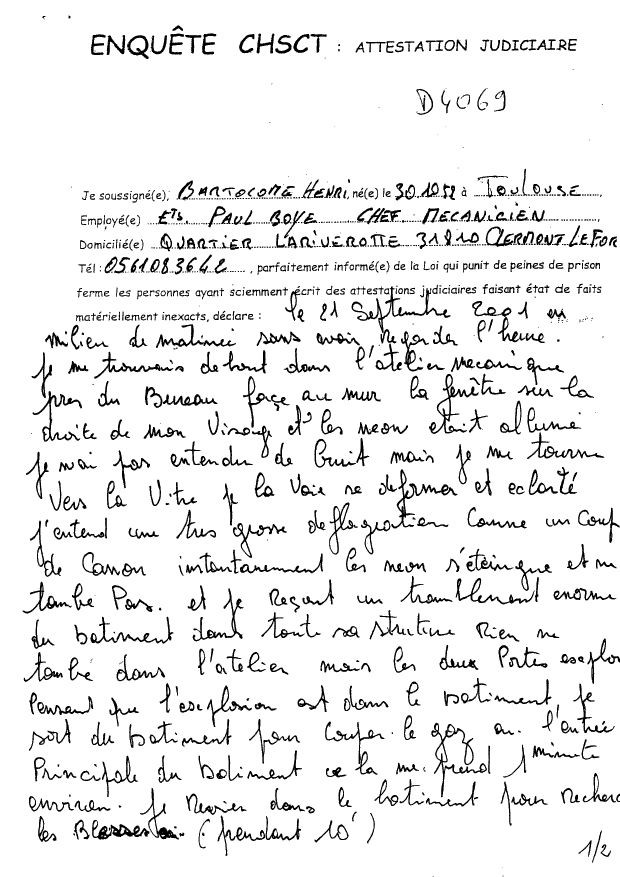 ENQUÊTE CHSCT : ATTESTATION JUDICIAIRE
D4069
Je soussigné(e), BARTOCOME HENRI né(e) le 30.10.52 à TOULOUSE,
Employé(e) Ets PAUL BOYE CHEF MECANICIEN,
Domicilié(e) QUARTIER LARIVEROTTE 31810 CLERMONT LE FOR
Tél : 0561083642, parfaitement informé(e) de la Loi qui punit de peines de prison
ferme les personnes ayant sciemment écrit des attestations judiciaires faisant état de faits
matériellement inexacts, déclare : le 21 Septembre 2001 en
milieu de matinée sans avoir regarder l'heure.
je me trouvais debout dans l'atelier mecanique
pres du Bureau façe au mur la fenêtre sur la
droite de mon Visage et les neon etait allumé
je n'ai pas entendu de bruit mais je me tourne
Vers la Vitre je la Voie se deformer et eclaté
j'entend une tres grosse deflagration comme un Coup
de Canon instantanement les neon s'éteingue et ne
tombe Pas. et je Reçent un tremblement enorme
du batiment dans toute sa struture Rien ne
tombé dans l'atelier mais les deux Portes explos
Pensant que l'explosion est dans le batiment, je
sort du batiment pour Couper le gaz a l'entrée
Principale du batiment ce la me prend 1 minute
environ. je Revien dans le batiment pour recherc
les (pendant 10')
1/2